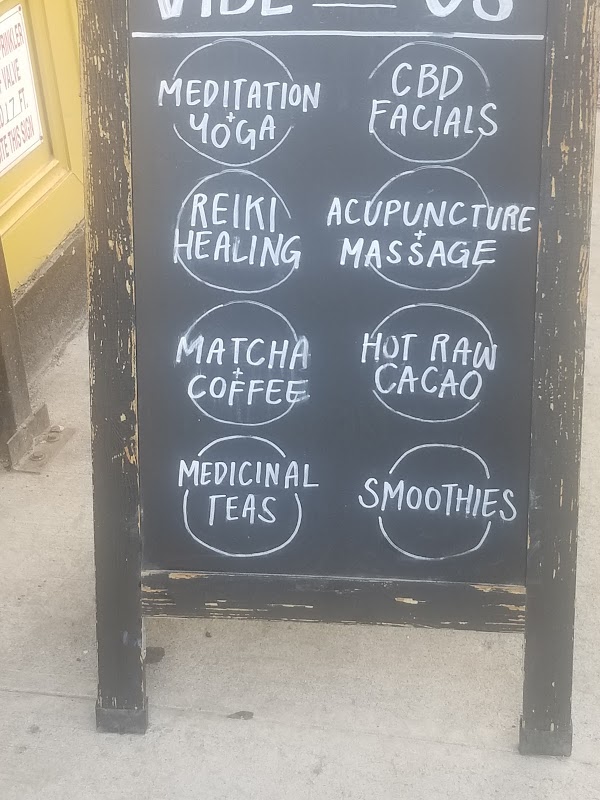 VIBE US
MEDITATION
+
YOGA
CBD
FACIALS
REIKI
HEALING
ACUPUNCTURE
+
MASSAGE
MATCHA
+
COFFEE
HOT RAW
CACAO
MEDICINAL
TEAS
SMOOTHIES
VALVE
FT.
THIS SIGN